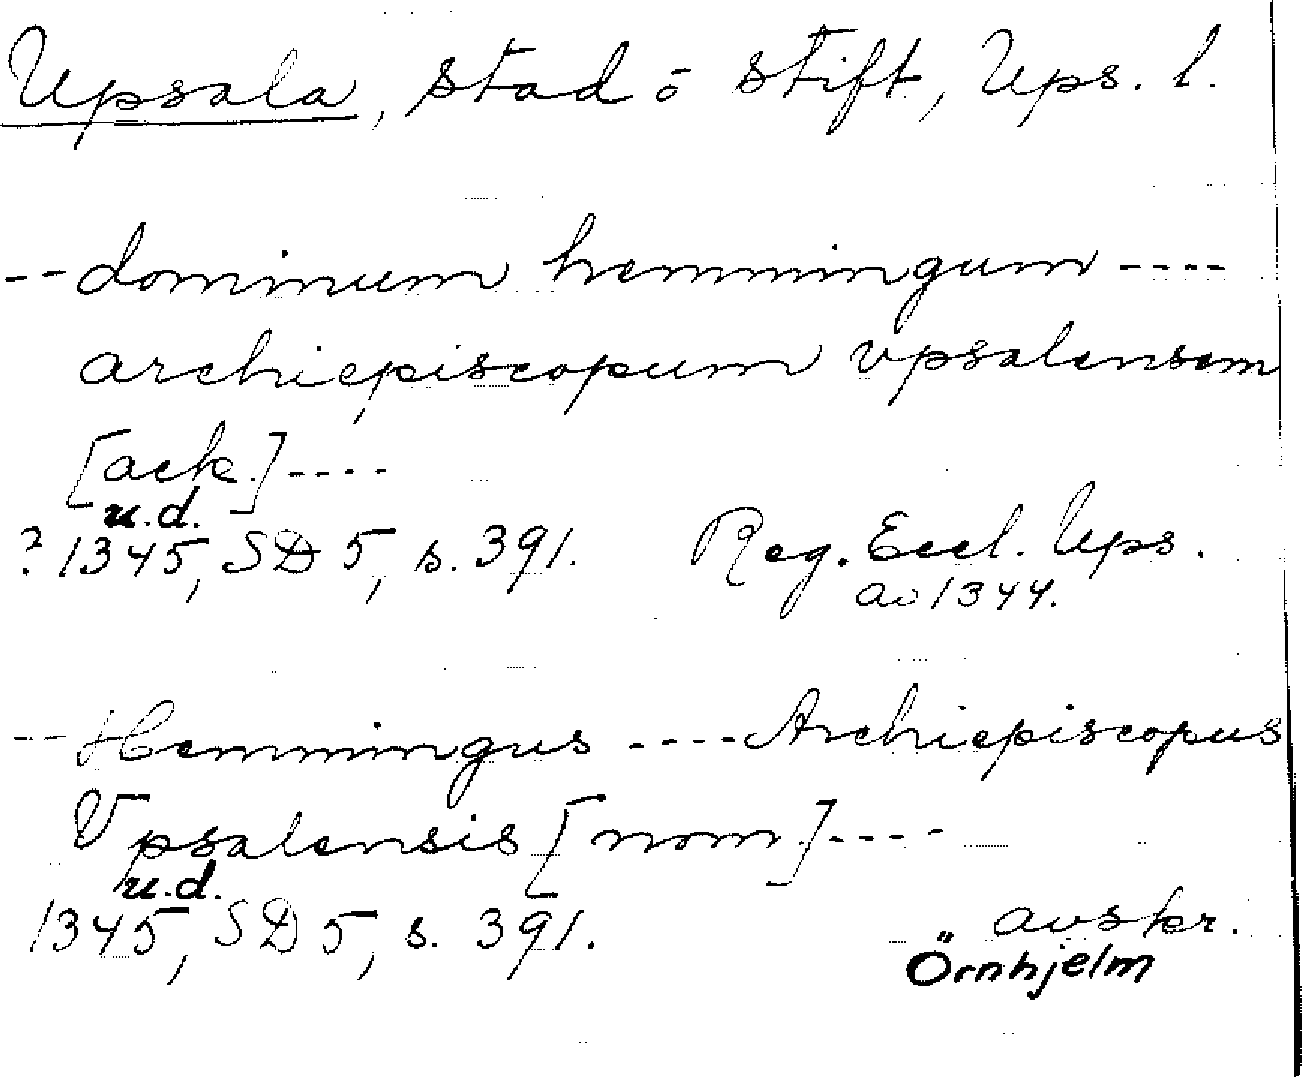 Upsala, stad o stift, Ups. l.
-- dominum hemmingum ----
archiepiscopum vpsalensem
[ack.] ----
u.d.
? 1345, SD 5, s. 391. Reg. Eccl. Ups.
av 1344.
-- Hemmingus ---- Archiepiscopus
Vpsalensis [nom.] ----
u.d.
1345, SD 5, s. 391. avskr.
Örnhjelm